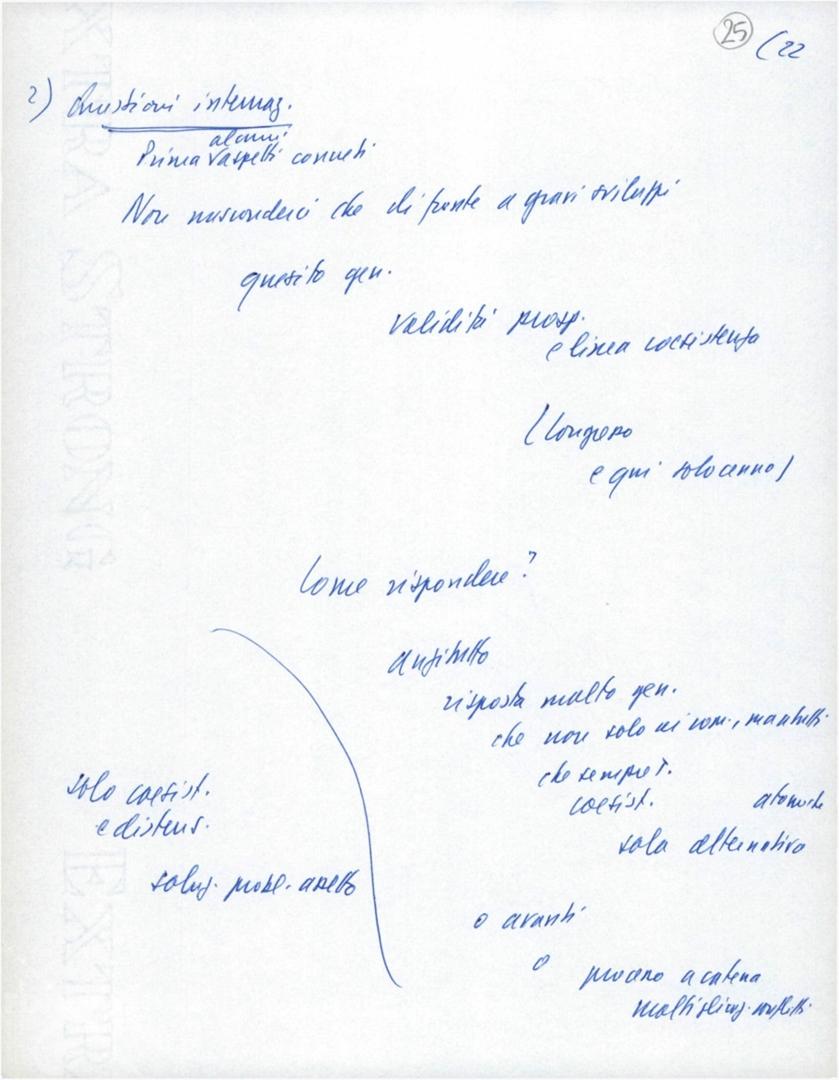 25 (22
2) Questioni internaz.
alcuni
Prima V aspetti concreti
Non nasconderci che di fronte a gravi sviluppi
quesito gen.
validità prosp.
e linea coesistenza
(Congresso
e qui solo cenno)
Come rispondere?
Anzitutto
risposta molto gen.
che non solo ai com.,
che sempre
coesist. atomiche
sola alternativa
solo coesist.
e distens.
soluz. probl. assetto
o avanti
o
processo a catena
moltiplicaz. conflitti